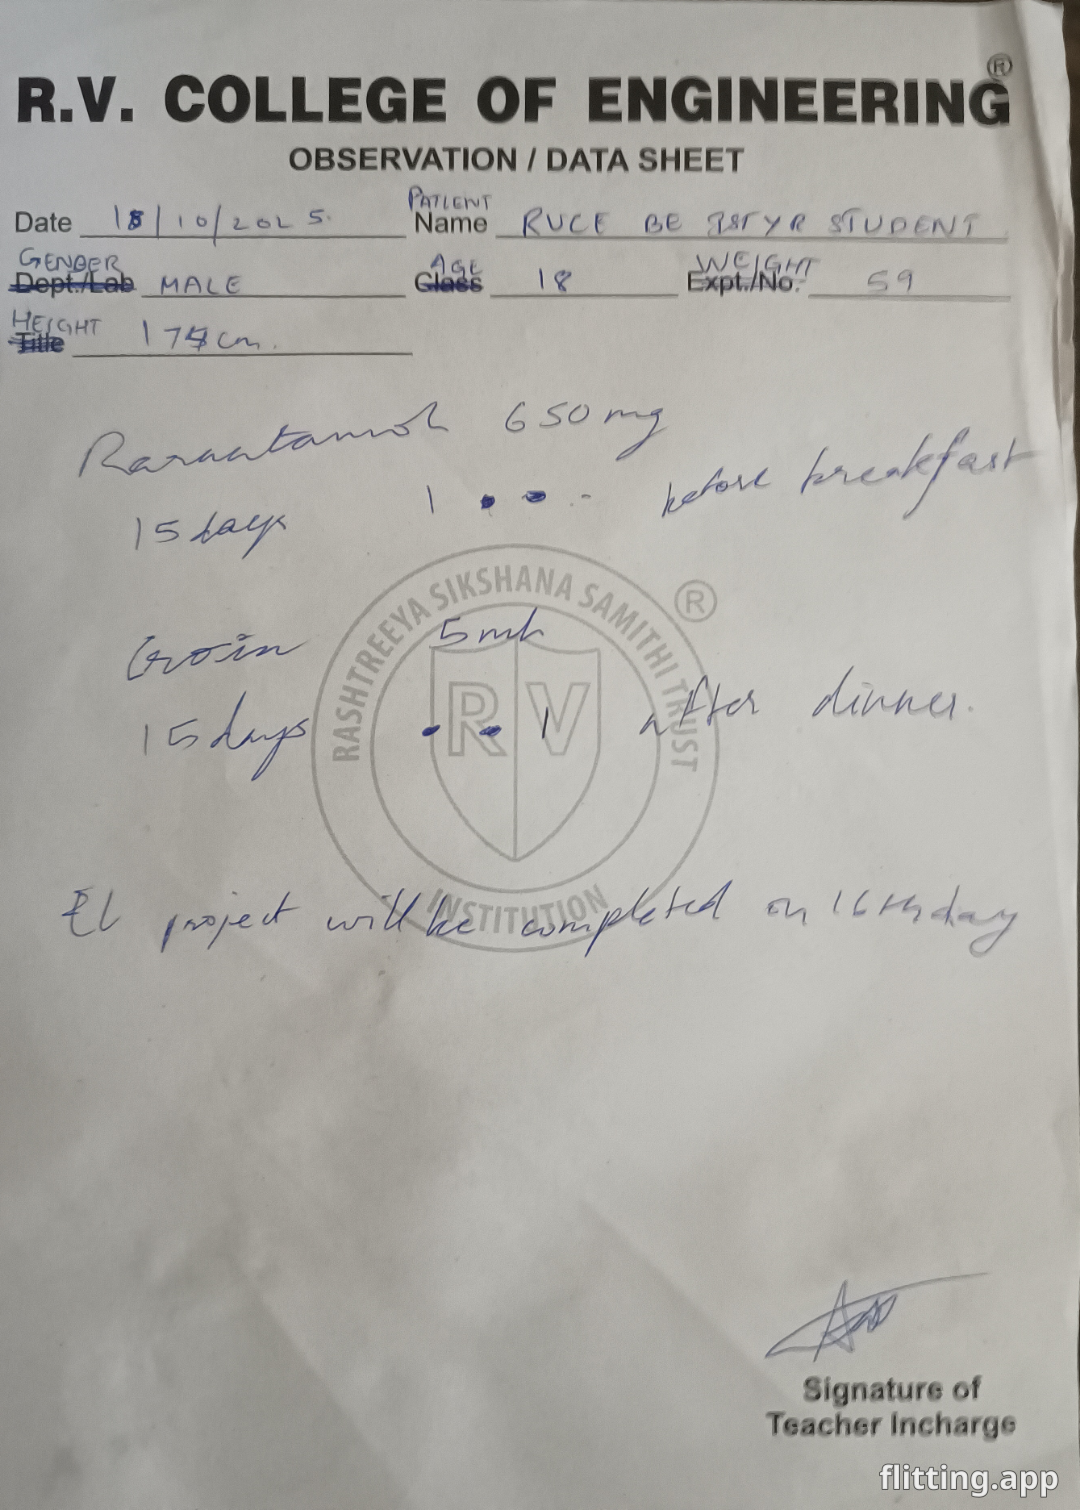 R.V. COLLEGE OF ENGINEERING ®
OBSERVATION / DATA SHEET
Date 18/10/2025. PATIENT Name RVCE BE 1ST YR STUDENT
GENDER Dept./Lab MALE AGE Class 18 WEIGHT Expt./No. 59
HEIGHT Title 175 cm.
650 mg
15 days 1 before breakfast
5 ml
15 days 1 after dinner.
EL project will be completed on 16th day
RASHTREEYA SIKSHANA SAMITHI TRUST ®
RV
INSTITUTION
Signature of
Teacher Incharge
flitting.app